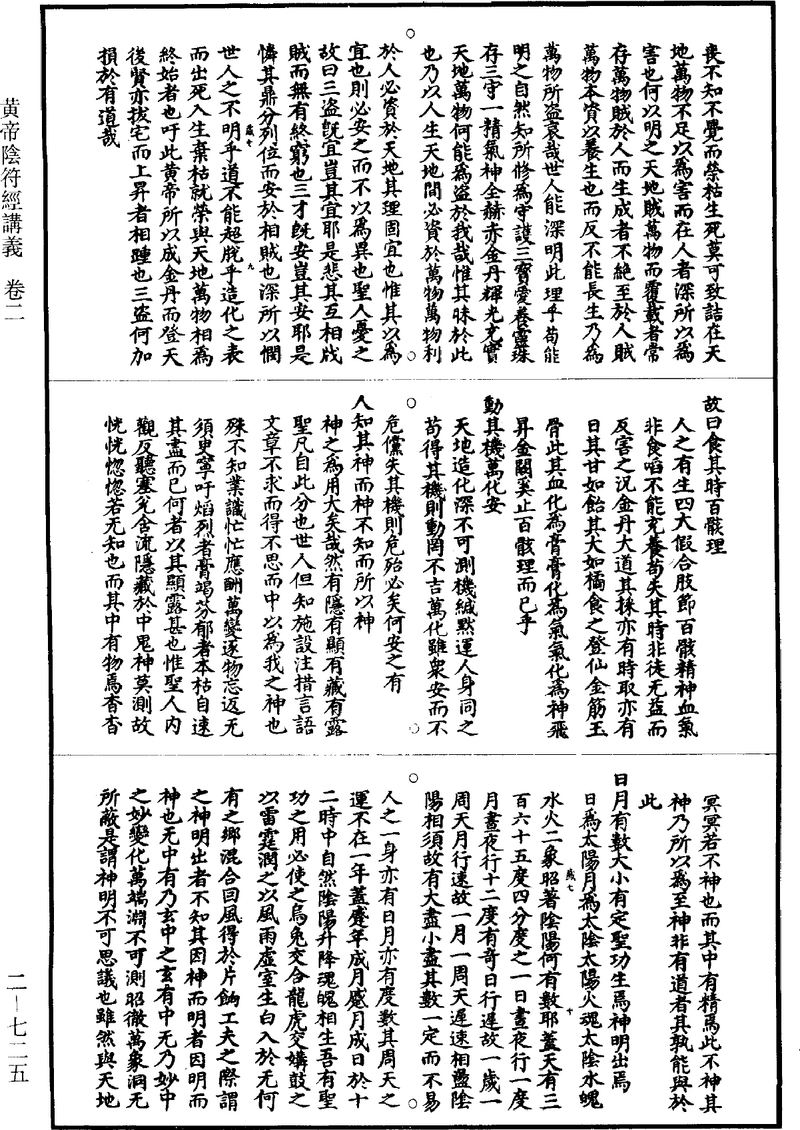 黄帝陰符經講義　卷二
喪不知不覺而榮枯生死莫可致詰在天
地萬物不足以爲害而在人者深所以爲
害也何以明之天地賊萬物而覆載者常
存萬物賊於人而生成者不絶至於人賊
萬物本資以養生也而反不能長生乃爲
萬物所盗哀哉世人能深明此理乎苟能
明之自然知所修爲守護三寳愛養靈珠
存三守一精氣神全赫赤金丹輝光充實
天地萬物何能爲盗於我哉惟其昧於此
也乃以人生天地間必資於萬物萬物利
於人必資於天地其理固宜也惟其以爲
宜也則必安之而不以爲異也聖人憂之
故曰三盗旣宜豈其宜耶是悲其互相戕
賊而無有終窮也三才旣安豈其安耶是
憐其鼎分列位而安於相賊也深所以憫
世人之不明乎道不能超脱乎造化之表
而出死入生棄枯就榮與天地萬物相爲
終始者也吁此黄帝所以成金丹而登天
後賢亦拔宅而上昇者相踵也三盗何加
損於有道哉
故曰食其時百骸理
人之有生四大假合肢節百骸精神血氣
非食啗不能充養苟失其時非徒无益而
反害之况金丹大道其採亦有時取亦有
日其甘如飴其大如橘食之登仙金筋玉
骨此其血化爲膏膏化爲氣氣化爲神飛
昇金闕奚止百骸理而已乎
動其機萬化安
天地造化深不可測機緘默運人身同之
苟得其機則動罔不吉萬化雖衆安而不
危儻失其機則危殆必矣何安之有
人知其神而神不知而所以神
神之爲用大矣哉然有隱有顯有藏有露
聖凡自此分也世人但知施設注措言語
文章不求而得不思而中以爲我之神也
殊不知業識忙忙應酬萬變逐物忘返无
須臾寧吁焰烈者膏竭芬郁者本枯自速
其盡而已何者以其顯露甚也惟聖人内
觀反聽塞兊舍流隱藏於中鬼神莫測故
恍恍惚惚若无知也而其中有物焉杳杳
冥冥若不神也而其中有精焉此不神其
神乃所以爲至神非有道者其孰能與於
此
日月有數大小有定聖功生焉神明出焉
日爲太陽月爲太陰太陽火魂太陰水魄
水火二象昭著陰陽何有數耶蓋天有三
百六十五度四分度之一日晝夜行一度
月晝夜行十二度有竒日行遲故一歲一
周天月行速故一月一周天遲速相盪陰
陽相須故有大盡小盡其數一定而不易
人之一身亦有日月亦有度數其周天之
運不在一年蓋蹙年成月蹙月成日於十
二時中自然陰陽升降魂魄相生吾有聖
功之用必使之烏兔交合龍虎交媾鼓之
以雷霆潤之以風雨虚室生白入於无何
有之鄉混合回風得於片餉工夫之際謂
之神明出者不知其因神而明者因明而
神也无中有乃玄中之玄有中无乃妙中
之妙變化萬端淵不可測昭徹萬象洞无
所蔽是謂神明不可思議也雖然與天地
二－七二五